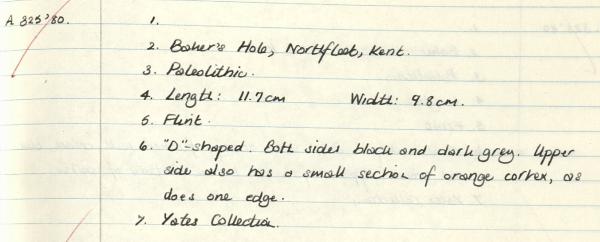 A 825'80.
1.
2. Baker's Hole, Northfleet, Kent.
3. Paleolithic.
4. Length: 11.7cm Width: 9.8cm.
5. Flint.
6. "D"-shaped. Both sides black and dark grey. Upper
side also has a small section of orange cortex, as
does one edge.
7. Yates Collection.